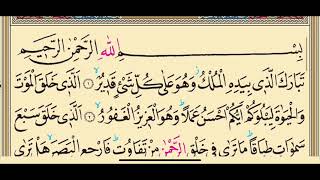 بِسْمِ اللهِ الرَّحْمٰنِ الرَّحِيْمِ
تَبَارَكَ الَّذِىْ بِيَدِهِ الْمُلْكُ وَهُوَ عَلٰى كُلِّ شَىْءٍ قَدِيْرٌ ١ الَّذِىْ خَلَقَ الْمَوْتَ
وَالْحَيٰوةَ لِيَبْلُوَكُمْ اَيُّكُمْ اَحْسَنُ عَمَلًا وَهُوَ الْعَزِيْزُ الْغَفُوْرُ ٢ الَّذِىْ خَلَقَ سَبْعَ
سَمٰوَاتٍ طِبَاقًا مَا تَرٰى فِىْ خَلْقِ الرَّحْمٰنِ مِنْ تَفَاوُتٍ فَارْجِعِ الْبَصَرَ هَلْ تَرٰى